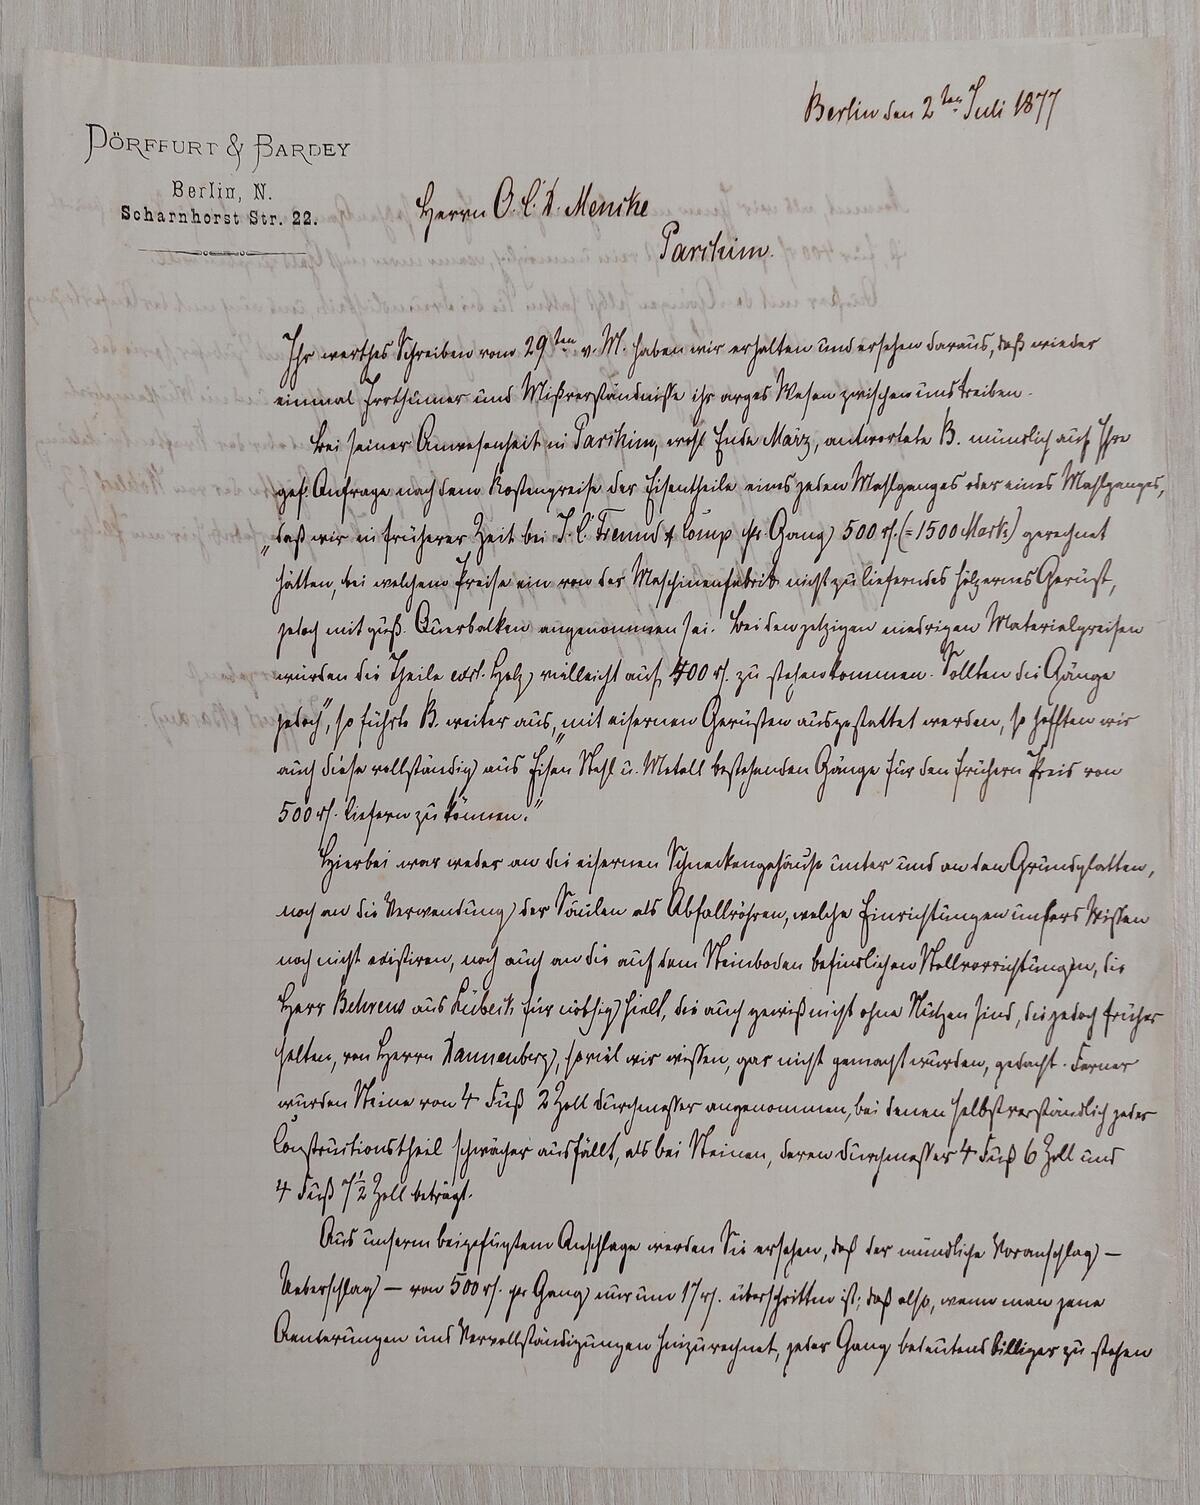 Berlin den 2ten Juli 1877
DÖRFFURT & BARDEY
Berlin, N.
Scharnhorst Str. 22.
Herrn O. C. D. Mencke
Parchim.
Ihr werthes Schreiben vom 29ten v. M. haben wir erhalten und ersehen daraus, daß wieder
einmal Irrthümer und Mißverständnisse ihr arges Wesen zwischen uns treiben.
Bei seiner Anwesenheit in Parchim, wohl Ende März, antwortete B. mündlich auf Ihre
gef. Anfrage nach dem Kostenpreise der Eisentheile eines jeden Mahlganges oder eines Mahlganges,
„daß wir in früherer Zeit bei J. C. Freund & Comp pr. Gang 500 rℓ. (= 1500 Mark) gerechnet
hätten, bei welchem Preise ein von der Maschinenfabrik nicht zu lieferndes hölzernes Gerüst,
jedoch mit guß. Querbalken angenommen sei. Bei den jetzigen niedrigen Materialpreisen
würden die Theile excl. Holz vielleicht auf 400 rℓ. zu stehen kommen. Sollten die Gänge
jedoch", so führte B. weiter aus, „mit eisernen Gerüsten ausgestattet werden, so hofften wir
auch diese vollständig aus Eisen Stahl u. Metall bestehenden Gänge für den frühern Preis von
500 rℓ. liefern zu können."
Hierbei war weder an die eisernen Schneckengehäuse unter und an den Grundplatten,
noch an die Verwendung der Säulen als Abfallröhren, welche Einrichtungen unsers Wissen
noch nicht existiren, noch auch an die auf dem Steinboden befindlichen Stellvorrichtungen, die
Herr Behrens aus Lübeck für nöthig hielt, die auch gewiß nicht ohne Nutzen sind, die jedoch früher
selten, von Herrn Dannenberg, soviel wir wissen, gar nicht gemacht wurden, gedacht. Ferner
wurden Steine von 4 Fuß 2 Zoll Durchmesser angenommen, bei denen selbstverständlich jeder
Constructionstheil schwächer ausfällt, als bei Steinen, deren Durchmesser 4 Fuß 6 Zoll und
4 Fuß 7½ Zoll beträgt.
Aus unserm beigefügtem Anschlage werden Sie ersehen, daß der mündliche Voranschlag —
Ueberschlag — von 500 rℓ. pr Gang nur um 17 rℓ. überschritten ist; daß also, wenn man jene
Aenderungen und Vervollständigungen hinzurechnet, jeder Gang bedeutend billiger zu stehen